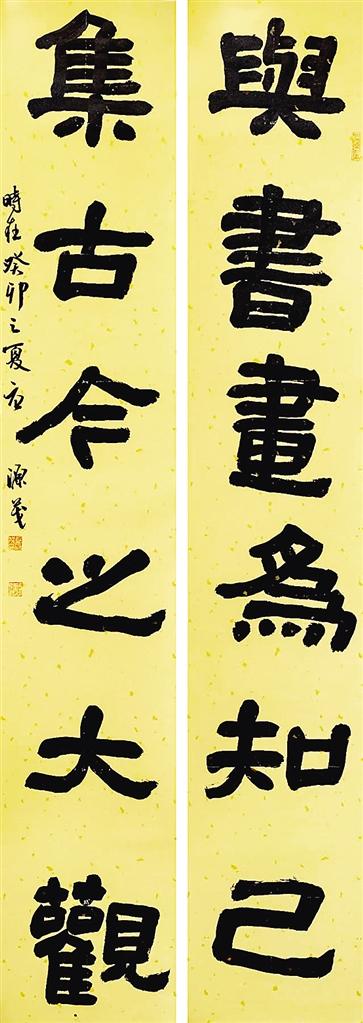 與書畫為知己
集古今之大觀
時在癸卯之夏